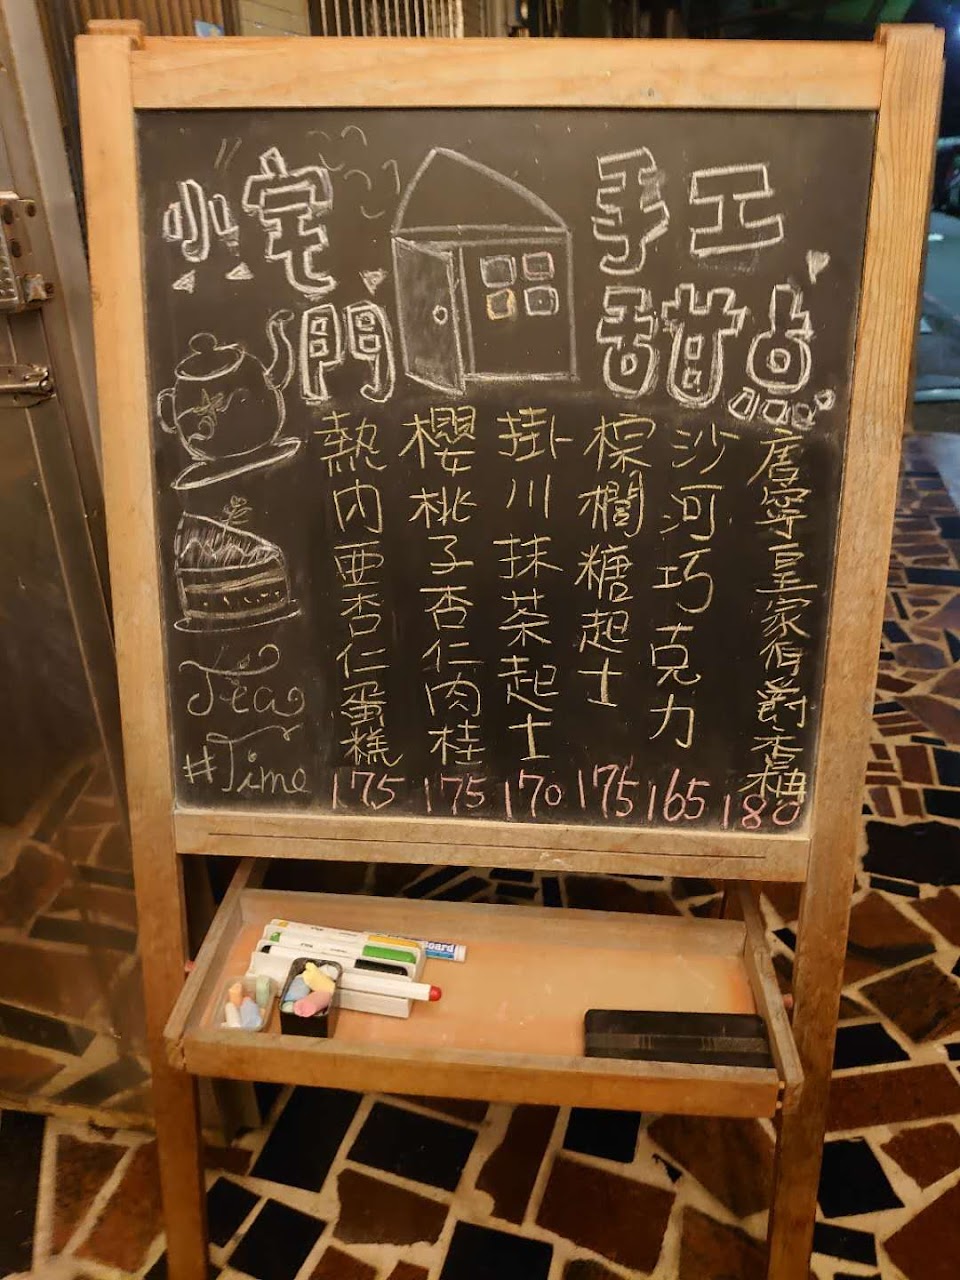 小宅門
手工甜点
唐寧皇家伯爵香柚
180
沙河巧克力
165
棕櫚糖起士
175
掛川抹茶起士
170
櫻桃子杏仁肉桂
175
熱內亞杏仁蛋糕
175
Tea
#Time
Board